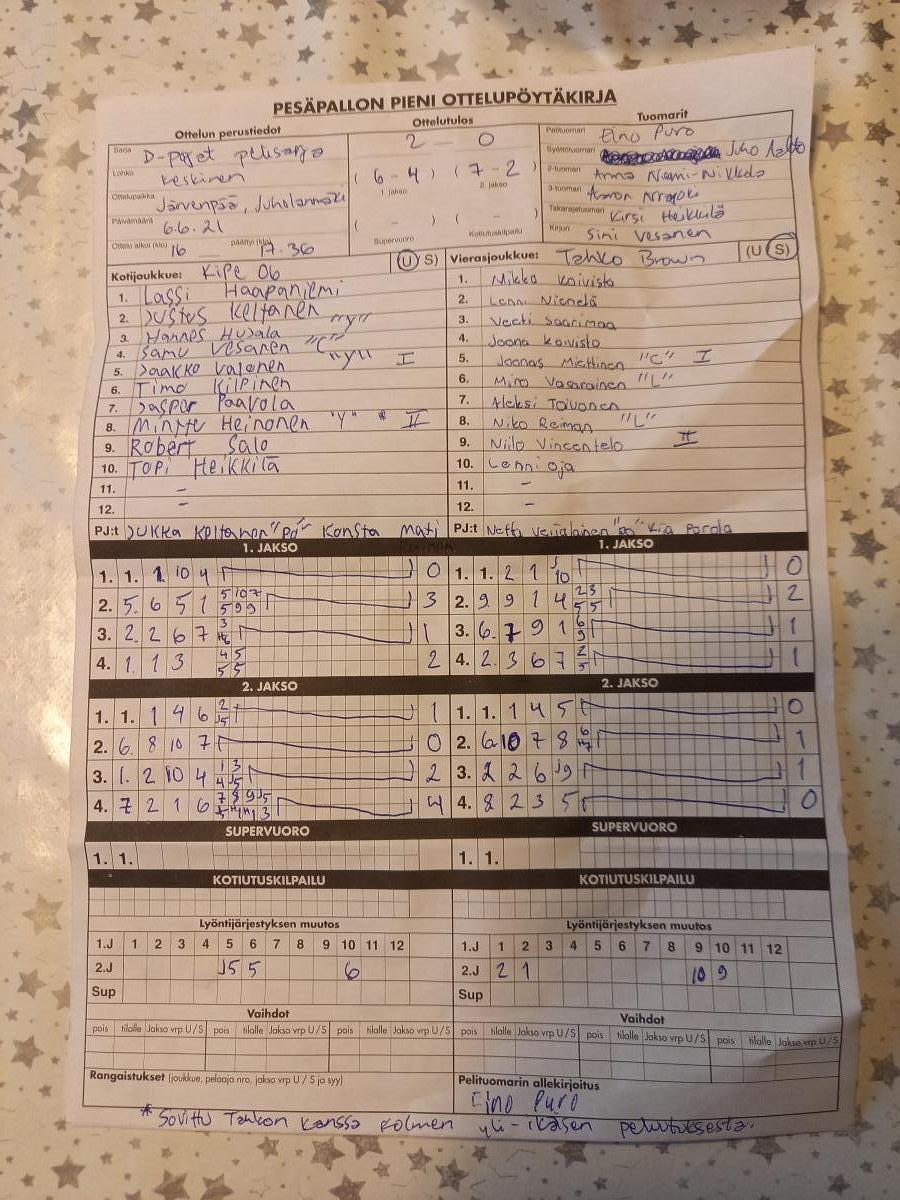 PESÄPALLON PIENI OTTELUPÖYTÄKIRJA
Ottelun perustiedot
Sarja D-pojat pelisarja
Lohko Keskinen
Ottelupaikka Järvenpää, Juholanmäki
Päivämäärä 6.6.21
Ottelu alkoi (klo) 16 päättyi (klo) 17.36
Ottelutulos
2 - 0
(6 - 4) (7 - 2)
1. jakso 2. jakso
( - ) ( - )
Supervuoro Kotiutuskilpailu
Tuomarit
Pelituomari Eino Puro
Syöttötuomari Juho Aalto
2-tuomari Anna Niemi-Nikkola
3-tuomari Aaron
Takarajatuomari Kirsi Heikkilä
Kirjuri Sini Vesanen
Kotijoukkue: Kipe 06 (U S)
1. Lassi Haapaniemi
2. Justus Keltanen "Y"
3. Hannes Husala
4. Samu Vesanen "C"
5. Jaakko Valonen "Y" I
6. Timo Kilpinen
7. Jasper Paavola
8. Minttu Heinonen "Y" * II
9. Robert Salo
10. Topi Heikkilä
11. -
12. -
PJ:t Jukka Keltanen "PJ" Konsta Mati
Vierasjoukkue: Tahko Brown (U S)
1. Mikko Koivisto
2. Lenni Nienelä
3. Veeti Saarimaa
4. Joona Koivisto
5. Joonas Miettinen "C" I
6. Miro Vasarainen "L"
7. Aleksi Toivonen
8. Niko Reiman "L"
9. Niilo Vincentelo II
10. Lenni Oja
11. -
12. -
PJ:t Netta Kia Parola
1. JAKSO
1. 1. 1 10 4 0
2. 5. 6 5 1 5 10 7 5 9 9 3
3. 2. 2 6 7 3 1
4. 1. 1 3 4 5 5 5 2
1. JAKSO
1. 1. 2 1 J10 0
2. 9. 9 1 4 2 3 5 5 2
3. 6. 7 9 1 6 9 1
4. 2. 3 6 7 2 5 1
2. JAKSO
1. 1. 1 4 6 2 J5 1
2. 6. 8 10 7 0
3. 1. 2 10 4 1 3 4 J5 2
4. 7 2 1 6 7 8 9 J5 4
2. JAKSO
1. 1. 1 4 5 0
2. 6. 10 7 8 6 1
3. 2 2 6 J9 1
4. 8 2 3 5 0
SUPERVUORO
1. 1.
SUPERVUORO
1. 1.
KOTIUTUSKILPAILU
KOTIUTUSKILPAILU
Lyöntijärjestyksen muutos
1.J 1 2 3 4 5 6 7 8 9 10 11 12
2.J J5 5 6
Sup
Lyöntijärjestyksen muutos
1.J 1 2 3 4 5 6 7 8 9 10 11 12
2.J 2 1 10 9
Sup
Vaihdot
pois tilalle Jakso vrp U/S pois tilalle Jakso vrp U/S pois tilalle Jakso vrp U/S
Vaihdot
pois tilalle Jakso vrp U/S pois tilalle Jakso vrp U/S pois tilalle Jakso vrp U/S
Rangaistukset (joukkue, pelaaja nro, jakso vrp U / S ja syy)
Pelituomarin allekirjoitus
Eino Puro
* Sovittu Tahkon kanssa kolmen yli-ikäisen peluutuksesta.